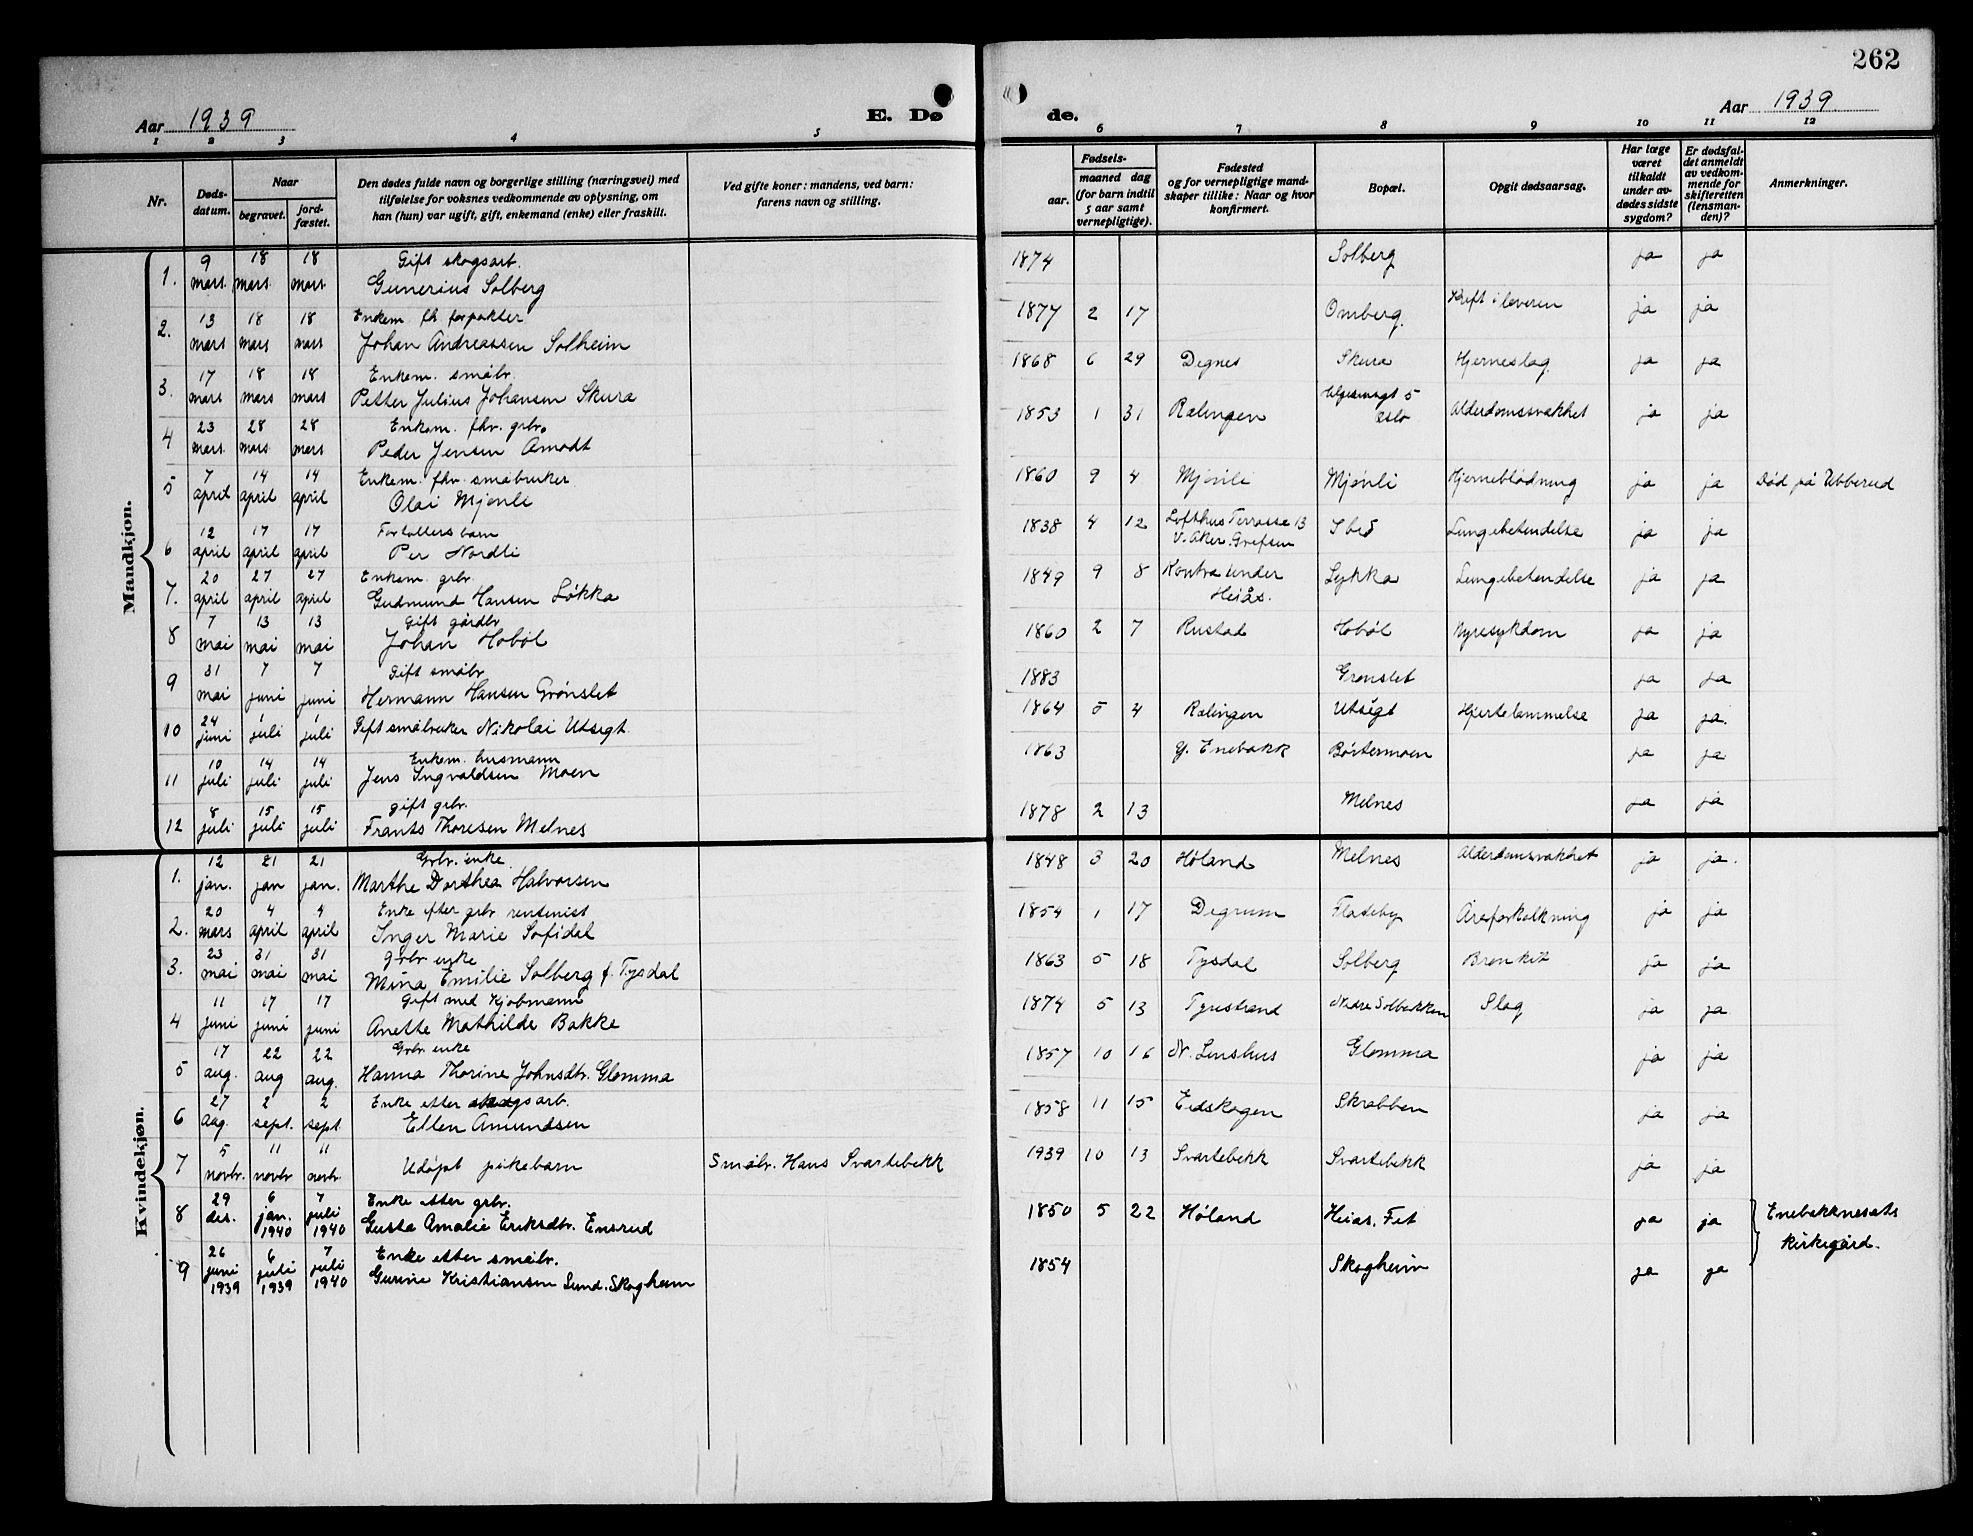 262
Aar 1939
E. Dø
de.
Aar 1939
1 2 3 4 5 6 7 8 9 10 11 12
Nr.
Døds-
datum.
Naar
begravet.
jord-
fæstet.
Den dødes fulde navn og borgerlige stilling (næringsvei) med
tilføielse for voksnes vedkommende av oplysning, om
han (hun) var ugift, gift, enkemand (enke) eller fraskilt.
Ved gifte koner: mandens, ved barn:
farens navn og stilling.
Fødsels-
aar.
maaned dag
(for barn indtil
5 aar samt
vernepligtige).
Fødested
og for vernepligtige mand-
skaper tillike: Naar og hvor
konfirmert.
Bopæl.
Opgit dødsaarsag.
Har læge
været
tilkaldt
under av-
dødes sidste
sygdom?
Er dødsfal-
det anmeldt
av vedkom-
mende for
skifteretten
(lensman-
den)?
Anmerkninger.
Mandkjøn.
1. 9 mars 18 mars 18 mars Gift skogsarb.
Gunerius Solberg 1874 Solberg ja ja
2. 13 mars 18 mars 18 mars Enkem. fh forpakter
Johan Andreassen Solheim 1877 2 17 Omberg. Kreft i leveren ja ja
3. 17 mars 18 mars 18 mars Enkem. småbr.
Petter Julius Johansen Skura 1868 6 29 Degnes Skura Hjerneslag ja ja
4 23 mars 28 mars 28 mars Enkem. fhv. grbr.
Peder Jensen Amodt 1853 1 31 Rælingen 5
Oslo Alderdomssvakhet ja ja
5 7 april 14 april 14 april Enkem. fhv. småbruker
Olai Mjønli 1860 9 4 Mjønli Mjønli Hjerneblødning ja ja Død på Ubberud
6 12 april 17 april 17 april Fortollers barn
Per Nordli 1838 4 12 Lofthus Terrasse 13
V. Aker. Grefsen Ibid Lungebetendelse ja ja
7. 20 april 27 april 27 april Enkem grbr.
Gudmund Hansen Løkka 1849 9 8 Kontra under
Heiås. Løkka Lungebetendelse ja ja
8 7 mai 13 mai 13 mai Gift gårdbr
Johan Hobøl 1860 2 7 Rustad Hobøl Nyresykdom ja ja
9 31 mai 7 juni 7 juni Gift småbr
Hermann Hansen Grønslet 1883 Grønslet ja ja
10 24 juni 1 juli 1 juli Gift småbruker Nikolai Utsigt 1864 5 4 Rælingen Utsigt Hjertelammelse ja ja.
11 10 juli 14 juli 14 juli Enkem. husmann
Jens Ingvaldsen Moen 1863 Y. Enebakk Børtermoen ja ja
12 8 juli 15 juli 15 juli gift grbr.
Frants Thoresen Melnes 1878 2 13 Melnes ja ja
Kvindekjøn.
1. 12 jan. 21 jan 21 jan. Grbr. enke
Marthe Dorthea Halvorsen 1848 3 20 Høland Melnes Alderdomsvakhet ja ja.
2. 20 mars 4 april 4 april Enke efter grbr rentenist
Inger Marie Sofidal 1854 1 17 Degrum Flateby Åreforkalkning ja ja
3. 23 mai 31 mai 31 mai grbr enke
Mina Emilie Solberg f. Tysdal 1863 5 18 Tysdal Solberg Bronkit ja ja
4 11 juni 17 juni 17 juni Gift med Kjøbmann
Anette Mathilde Bakke 1874 5 13 Tyristrand Nedre Solbakken Slag ja ja
5 17 aug. 22 aug 22 aug. Grbr enke
Hanna Thorine Johnsdtr. Glomma 1857 10 16 N. Lunshus Glomma ja ja
6 27 Aug. 2 sept. 2 sept. Enke etter skogsarb.
Ellen Amundsen 1858 11 15 Eidskogen Skrabben ja ja
7 5 novbr. 11 novbr 11 novbr. Udøpt pikebarn Småbr. Hans Svartebekk 1939 10 13 Svartebekk Svartebekk ja ja
8 29 des. 6 jan. 1940 7 juli 1940 Enke etter grbr.
Gusta Amalie Eriksdtr. Ensrud 1850 5 22 Høland Heiås. Fet ja ja Enebakknesets
kirkegård.
9 26 juni 1939 6 juli 1939 7 juli 1940 Enke etter småbr.
Gurine Kristiansen Lund. Skogheim 1854 Skogheim ja ja